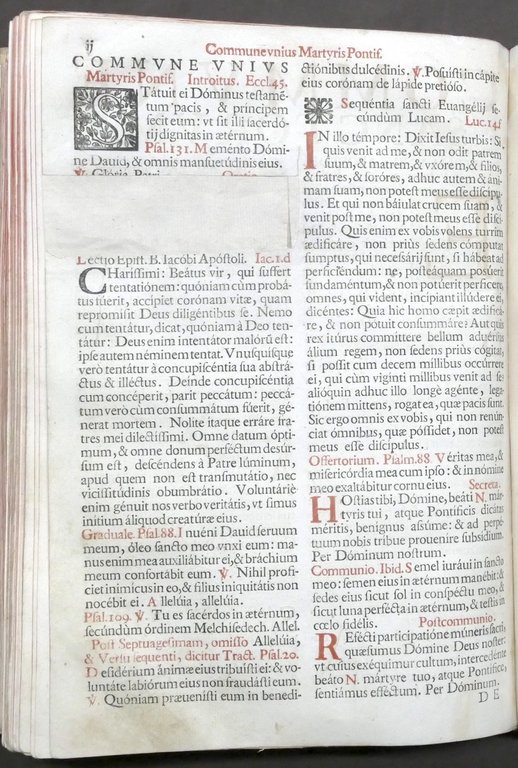 ij
Commune vnius Martyris Pontif.
COMMVNE VNIVS
Martyris Pontif. Introitus. Eccl.45.
STátuit ei Dóminus testamē-
tum pacis, & principem
fecit eum: vt sit illi sacerdó-
tij dignitas in ætérnum.
Psal.131. Meménto Dómi-
ne Dauid, & omnis mansuetúdinis eius.
Lectio Epist. B. Iacóbi Apóstoli. Iac.1.d
CHarissimi: Beátus vir, qui suffert
tentatiónem: quóniam cùm probá-
tus fúerit, accipiet corónam vitæ, quam
repromisit Deus diligéntibus se. Nemo
cùm tentátur, dicat, quóniam à Deo ten-
tátur: Deus enim intentátor malórũ est:
ipse autem néminem tentat. Vnusquisque
verò tentátur à concupiscéntia sua abstrá-
ctus & illéctus. Deínde concupiscéntia
cum concéperit, parit peccátum: peccá-
tum verò cùm consummátum fúerit, gé-
nerat mortem. Nolíte itaque erráre fra-
tres mei dilectissimi. Omne datum ópti-
mum, & omne donum perféctum desúr-
sum est, descéndens à Patre lúminum,
apud quem non est transmutátio, nec
vicissitúdinis obumbrátio. Voluntáriè
enim génuit nos verbo veritátis, vt simus
inítium áliquod creatúræ eius.
Graduale. Psal.88. Inuéni Dauid seruum
meum, óleo sancto meo vnxi eum: ma-
nus enim mea auxiliábitur ei, & bráchium
meum confortábit eum. ℣. Nihil profí-
ciet inimícus in eo, & fílius iniquitátis non
nocébit ei. Allelúia, allelúia.
Psal.109. ℣. Tu es sacérdos in ætérnum,
secúndùm órdinem Melchísedech. Allel.
Post Septuagesimam, omisso Alleluia,
& Versu sequenti, dicitur Tract. Psal.20.
Desidérium ánimæ eius tribuísti ei: & vo-
luntáte labiórum eius non fraudásti eum.
℣. Quóniam præuenísti eum in benedi-
ctiónibus dulcédinis. ℣. Posuísti in cápite
eius corónam de lápide pretióso.
Sequéntia sancti Euangélij se-
cúndùm Lucam. Luc.14.f
IN illo témpore: Dixit Iesus turbis: Si
quis venit ad me, & non odit patrem
suum, & matrem, & vxórem, & fílios,
& fratres, & soróres, adhuc autem & áni-
mam suam, non potest meus esse discípu-
lus. Et qui non báiulat crucem suam, &
venit post me, non potest meus esse discí-
pulus. Quis enim ex vobis volens turrim
ædificáre, non priùs sedens cómputat
sumptus, qui necessárij sunt, si hábeat ad
perficiéndum: ne, posteáquam posúerit
fundaméntum, & non potúerit perfícere,
omnes, qui vident, incípiant illúdere ei,
dicéntes: Quia hic homo cœpit ædificá-
re, & non pótuit consummáre? Aut quis
rex itúrus commíttere bellum aduérsus
álium regem, non sedens priùs cógitat,
si possit cum decem míllibus occúrrere
ei, qui cùm vigínti míllibus venit ad se?
alióquin adhuc illo longè agénte, lega-
tiónem mittens, rogat ea, quæ pacis sunt.
Sic ergo omnis ex vobis, qui non renún-
ciat ómnibus, quæ póssidet, non potest
meus esse discípulus.
Offertorium. Psalm.88. Véritas mea, &
misericórdia mea cum ipso: & in nómine
meo exaltábitur cornu eius. Secreta.
HOstias tibi, Dómine, beáti N. már-
tyris tui, atque Pontíficis dicátas
méritis, benígnus assúme: & ad perpé-
tuum nobis tríbue prouenire subsídium.
Per Dóminum nostrum.
Communio. Ibid. Semel iuráui in sancto
meo: semen eius in ætérnum manébit: &
sedes eius sicut sol in conspéctu meo, &
sicut luna perfécta in ætérnum, & testis in
cœlo fidélis. Postcommunio.
REfécti participatióne múneris sacri,
quǽsumus Dómine Deus noster:
vt cuius exéquimur cultum, intercedénte
beáto N. mártyre tuo, atque Pontífice,
sentiámus efféctum. Per Dóminum.
DE